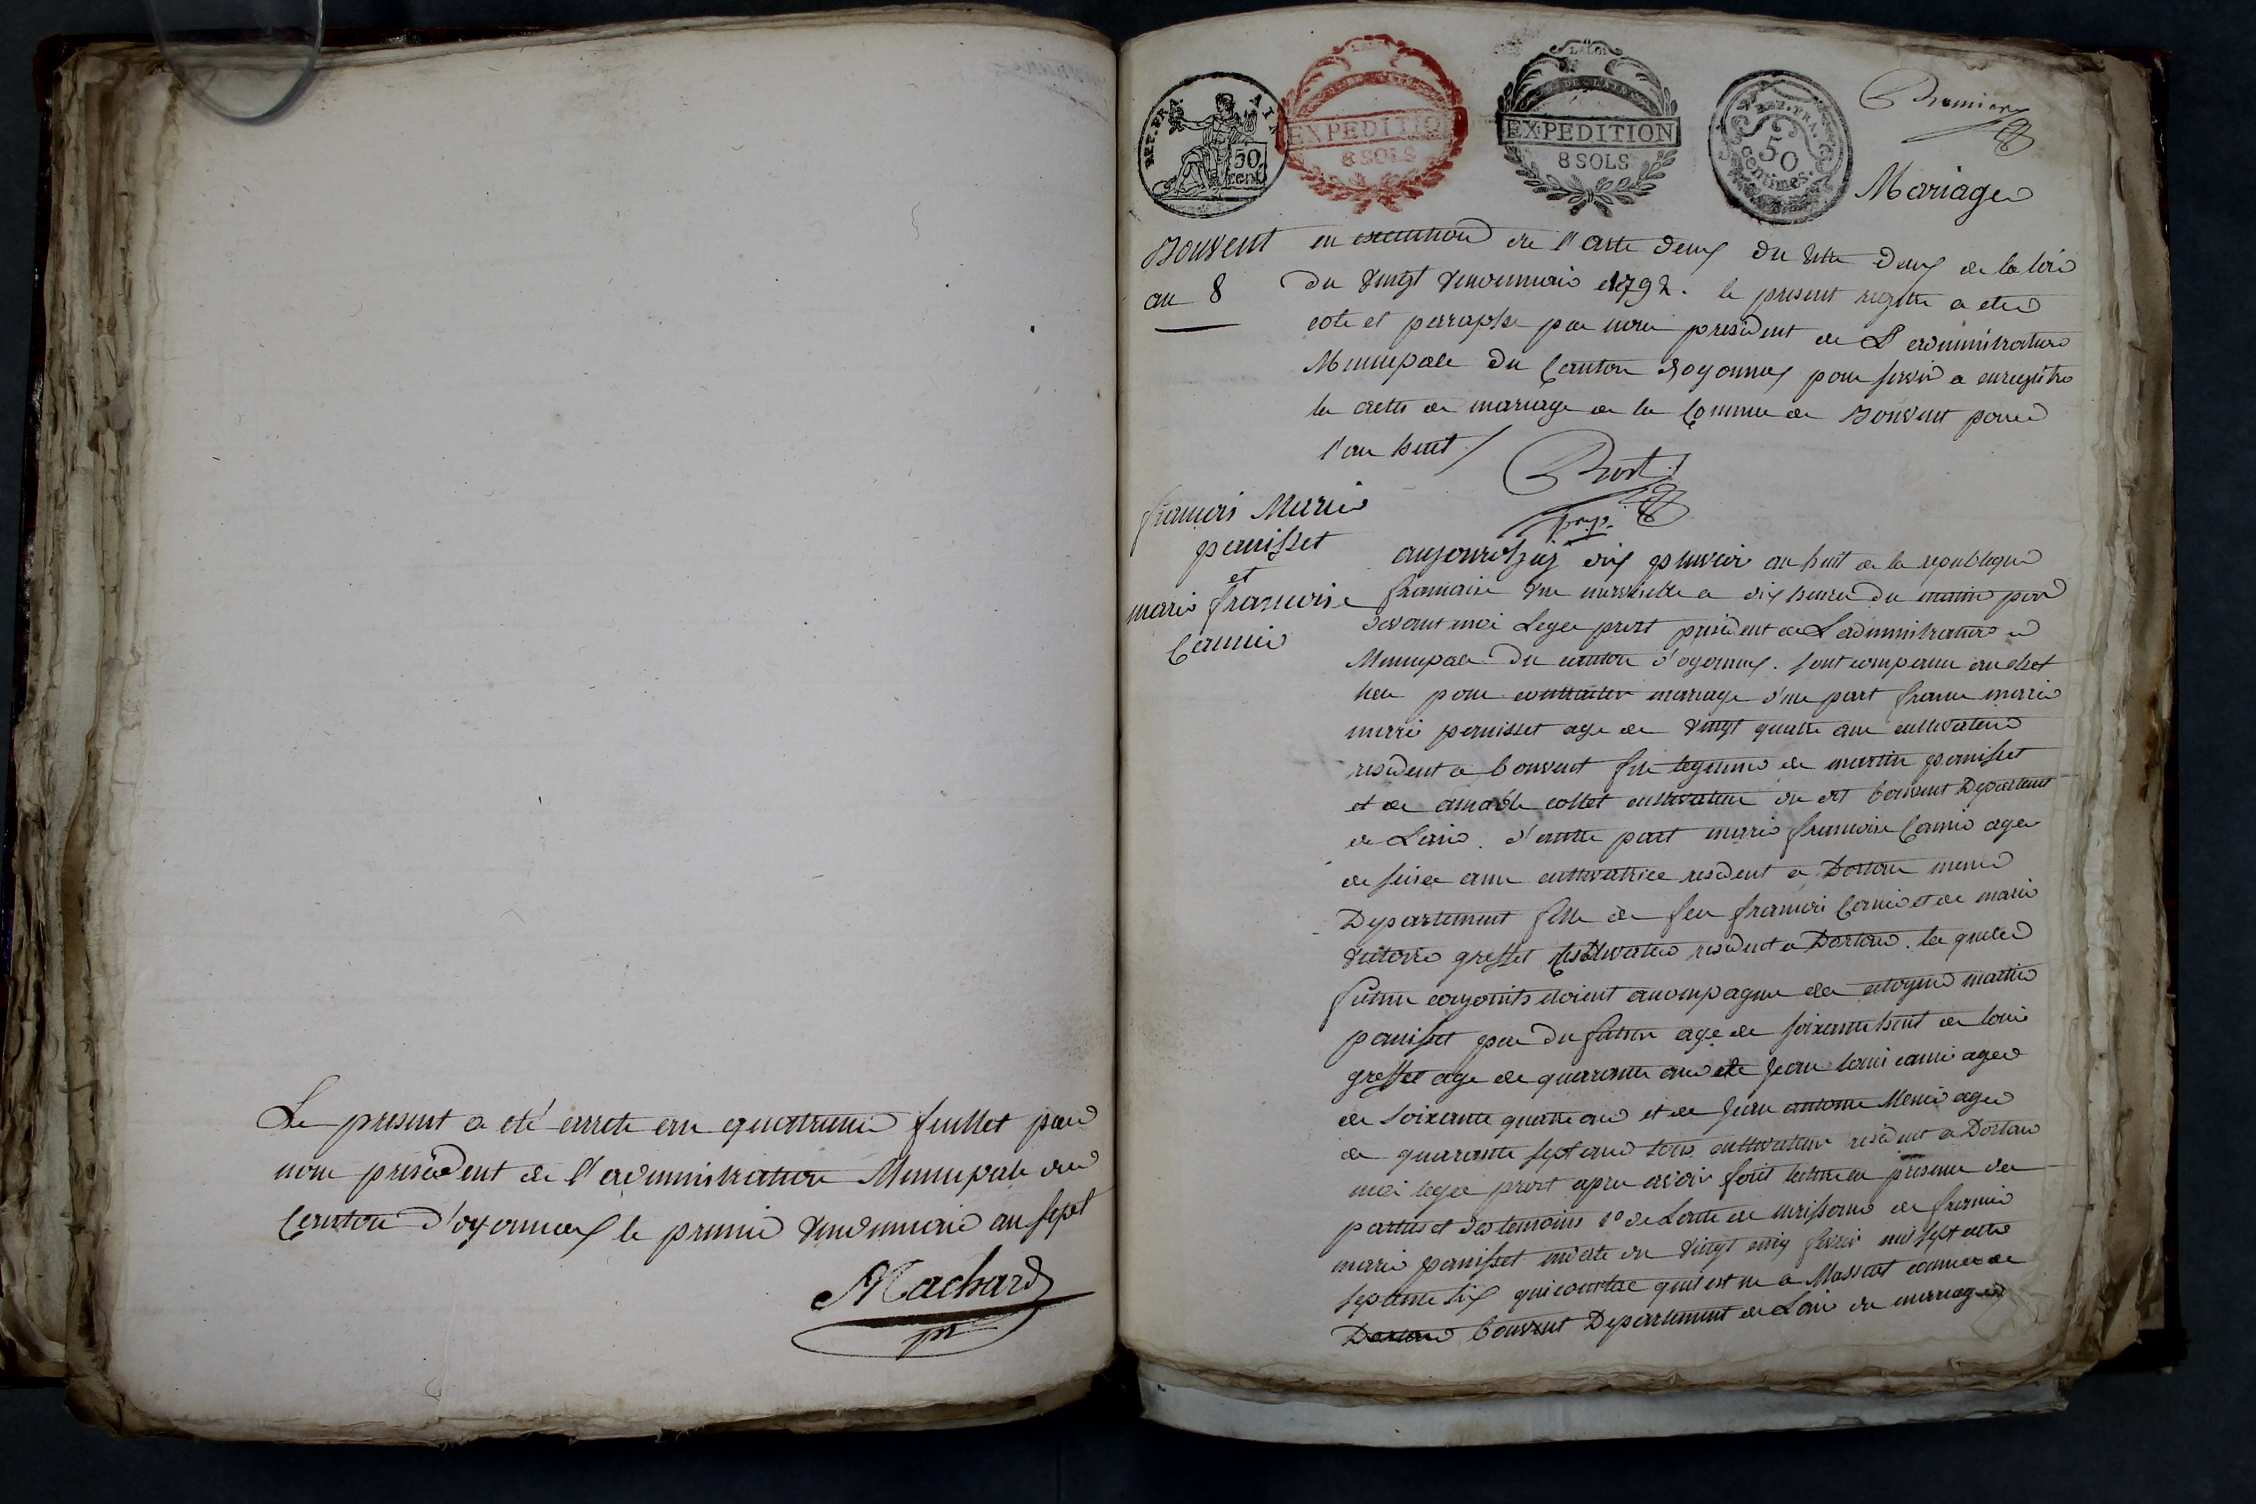 Le present a eté arrete au quatrieme feuillet par
nous president de l'administration Municipale du
Canton d'oyonnax le premie vendemiaire an sept
Machard
pr
REP. FRA
50
cent.
EXPEDITION
8 SOLS
LA LOI
EXPEDITION
8 SOLS
REP. FRA.
50
centimes.
Premier
Mariage
Bouvent
an 8
en execution de l'arte deux du titre deux de la loi
du vingt vendemiaire 1792. le present registre a ete
cote et parraphe par nous president de L'administration
Municipale du Canton d'oyonnax pour servir a enregistre
les actes de mariage de la Commune de Bouvent pour
l'an huit /
Prost
pr
françois Marie
panisset
et
marie francoise
Cannie
aujourdhuj dix pluviose an huit de la republique
francaise une indivisible a dix heure du matin par
devant moi Leger prost president de L'administration
Municipale du canton d'oyonnax. sont comparu au chef
lieu pour contracter mariage d'une part francoi marie
marie panisset age de vingt quatre ans cultivateur
resident a bouvent fils legitime de martin panisset
et de amable collet cultivateur du dit bouvent Departement
de Lain. d'autre part marie francoise Cannie agee
de seise anne cultivatrice resident a Dortan meme
Departement fille de feu francois Cannie et de marie
victoire gresset cultivatrice resident a Dortan. les quels
futur conjoints etoient accompagne des citoyens martin
panisset pere du futur age de soixante huit de louis
gresset age de quarante ans de jean louis cannie age
de soixante quatre ans et de jean antoine Menie age
de quarante sept ans tous cultivateur resident a Dortan
moi leger prost apres avoir fait lecture en presence des
parties et des temoins 1° de Lacte de naissance de francois
marie panisset en date du vingt cinq fevrier mil sept cent
septante six qui constate quil est ne a Massiat commune de
Dortan bouvent Departement de Lain du mariage